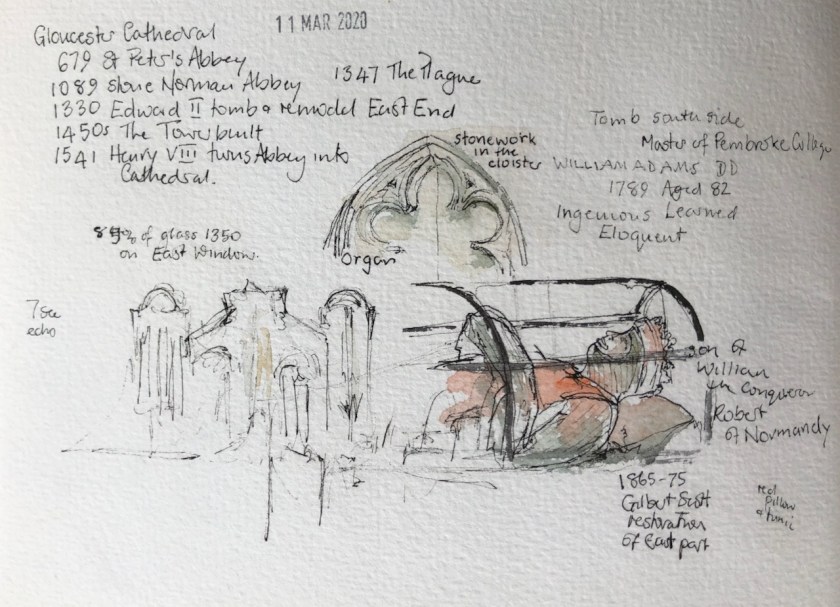 Gloucester Cathedral
11 MAR 2020
679 St Peter's Abbey
1089 stone Norman Abbey
1347 The Plague
1330 Edward II tomb & remodel East End
1450s The Tower built
1541 Henry VIII turns Abbey into
Cathedral.
stonework
in the
cloister
Tomb south side
Master of Pembroke College
WILLIAM ADAMS DD
1789 Aged 82
Ingenious Learned
Eloquent
% of glass 1350
on East Window.
Organ
7 sec
echo
son of
William
the Conqueror
Robert
of Normandy
1865-75
Gilbert Scott
restoration
of East part
red
pillow
& tunic